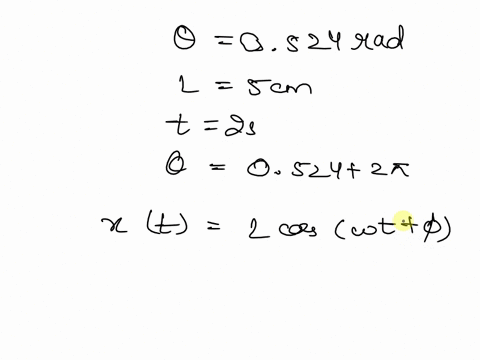 θ = 0.524 rad
L = 5cm
t = 2s
θ = 0.524 + 2π
x (t) = L cos (ωt + ϕ)